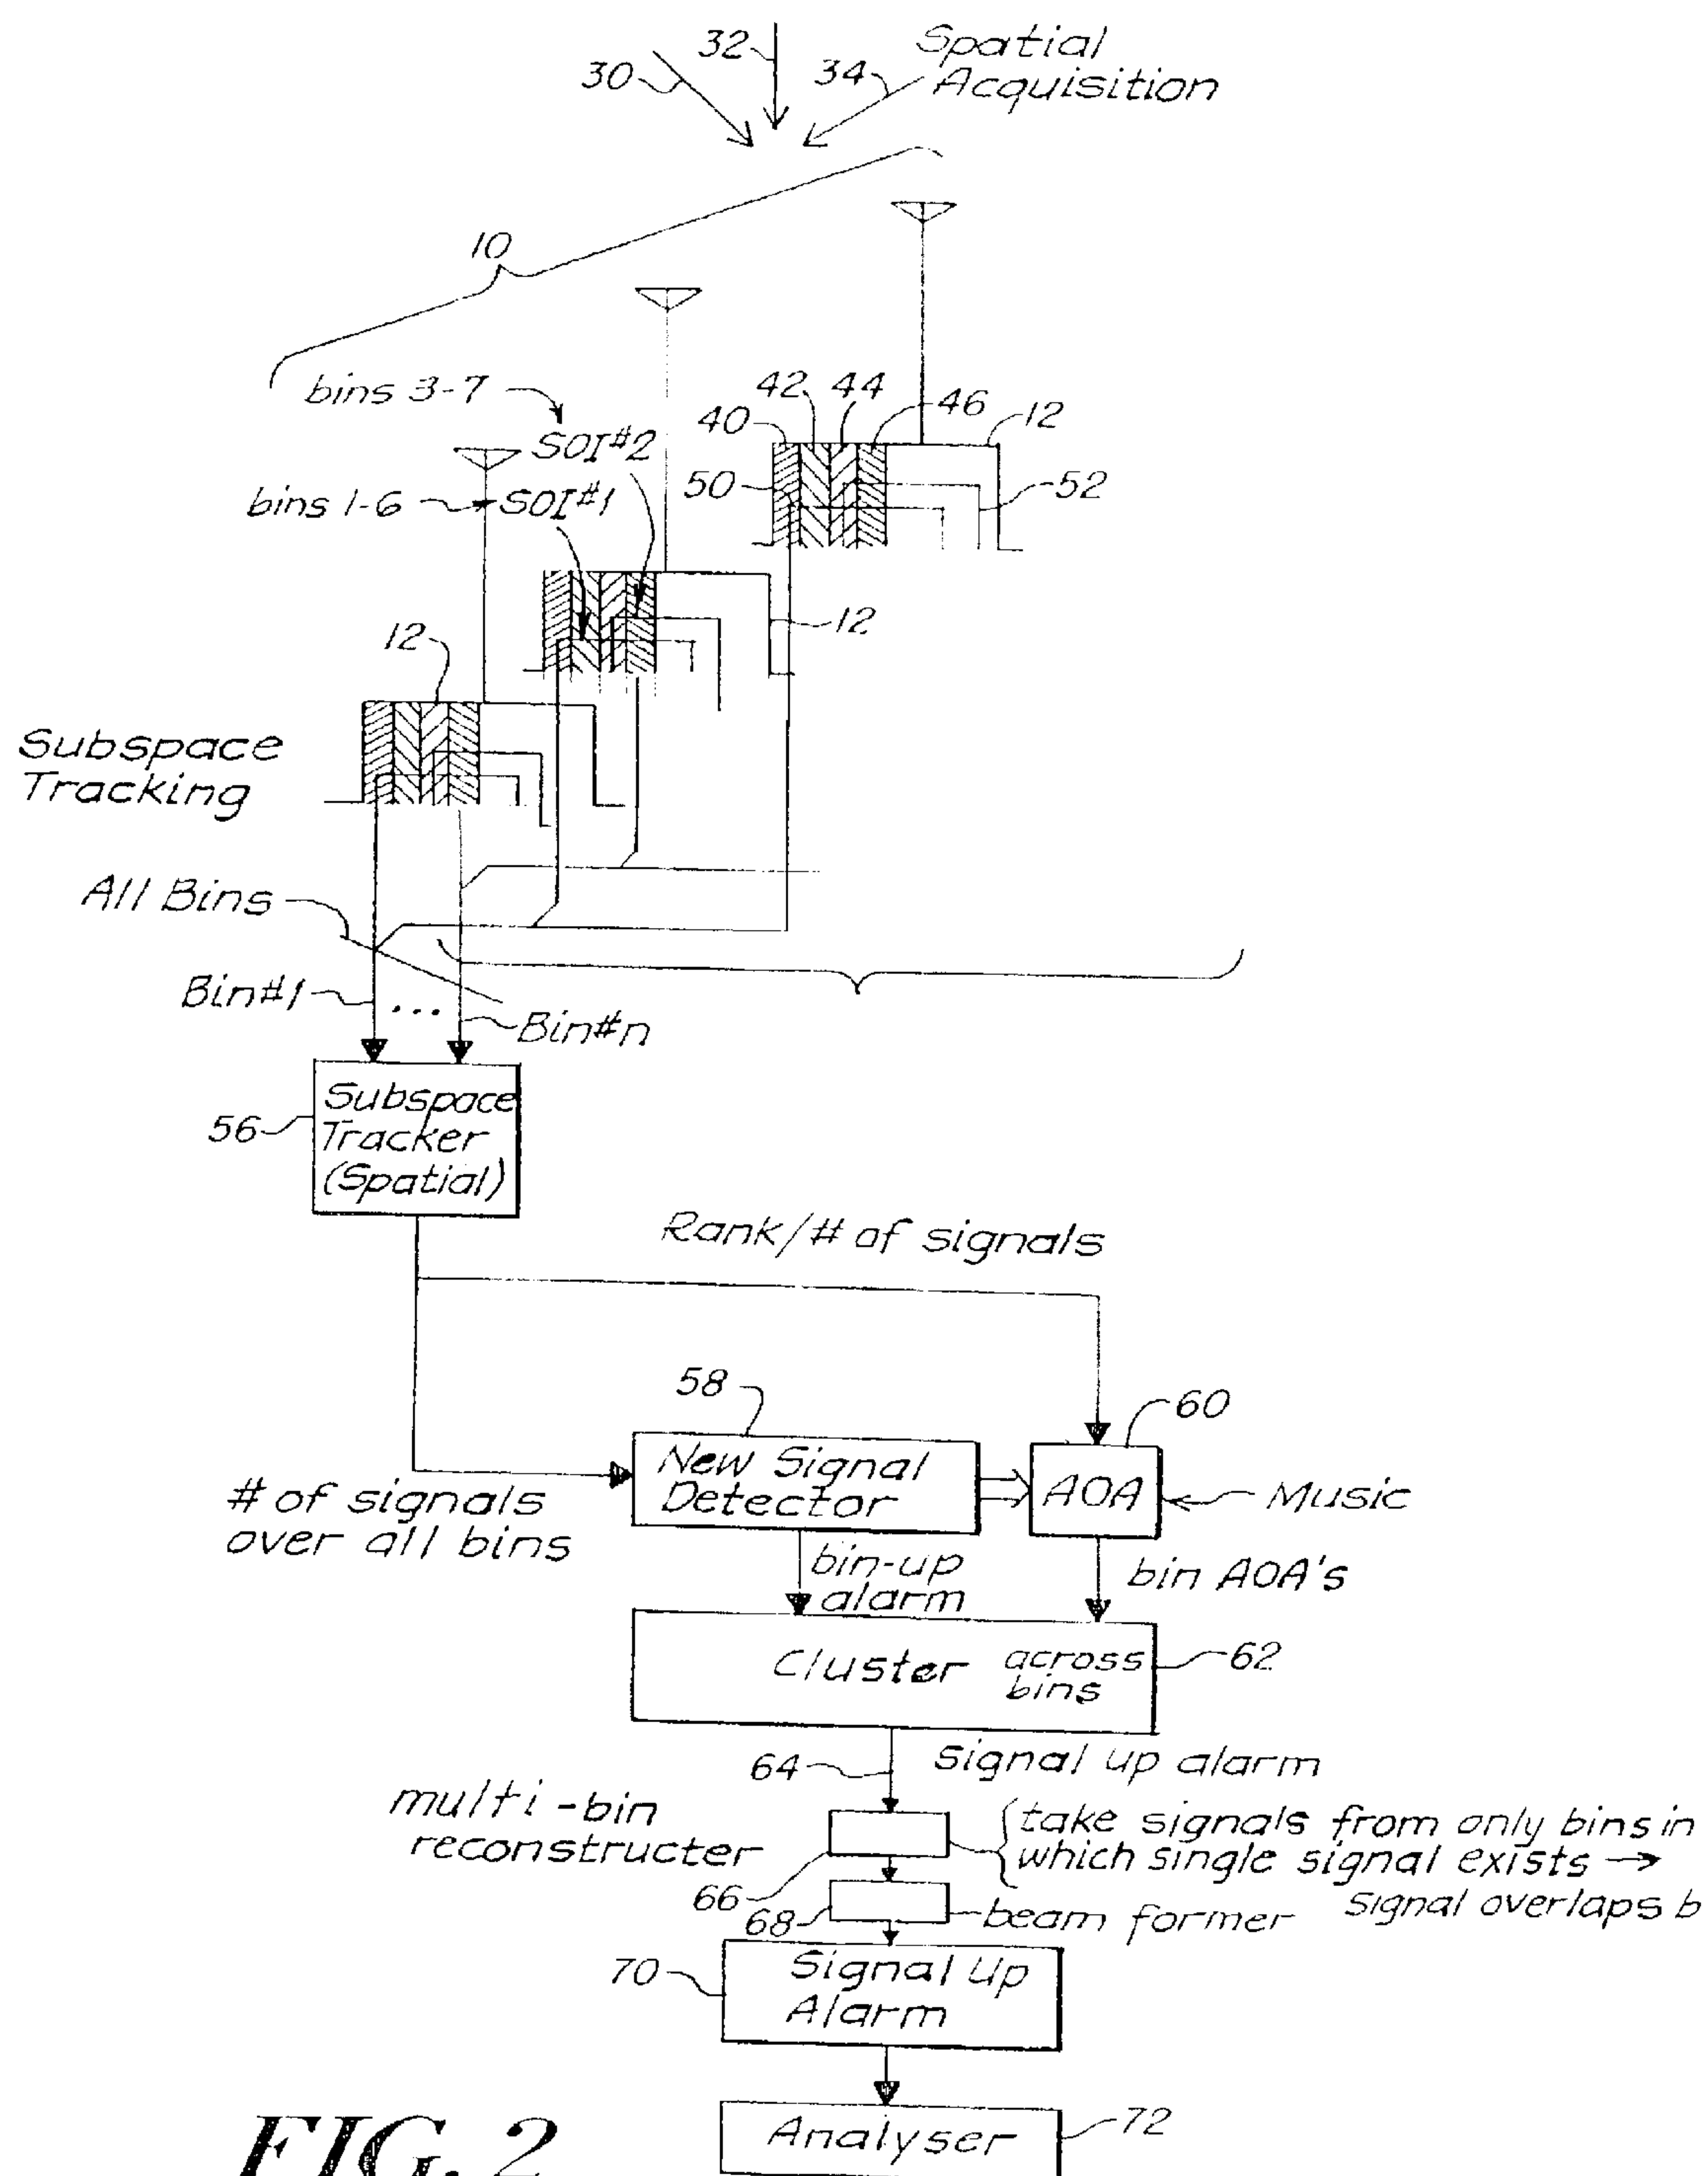 32
Spatial
30
34
Acquisition
10
bins 3-7
42
44
46
12
40
SOI#2
50
52
bins 1-6
SOI#1
12
12
Subspace
Tracking
All Bins
Bin#1
...
Bin#n
Subspace
Tracker
(Spatial)
56
Rank/# of signals
58
60
New Signal
Detector
AOA
Music
# of signals
over all bins
bin-up
alarm
bin AOA's
Cluster
across
bins
62
64
Signal up alarm
multi-bin
reconstructer
take signals from only bins in
which single signal exists →
66
68
beam former
Signal overlaps b
70
Signal Up
Alarm
Analyser
72
FIG. 2